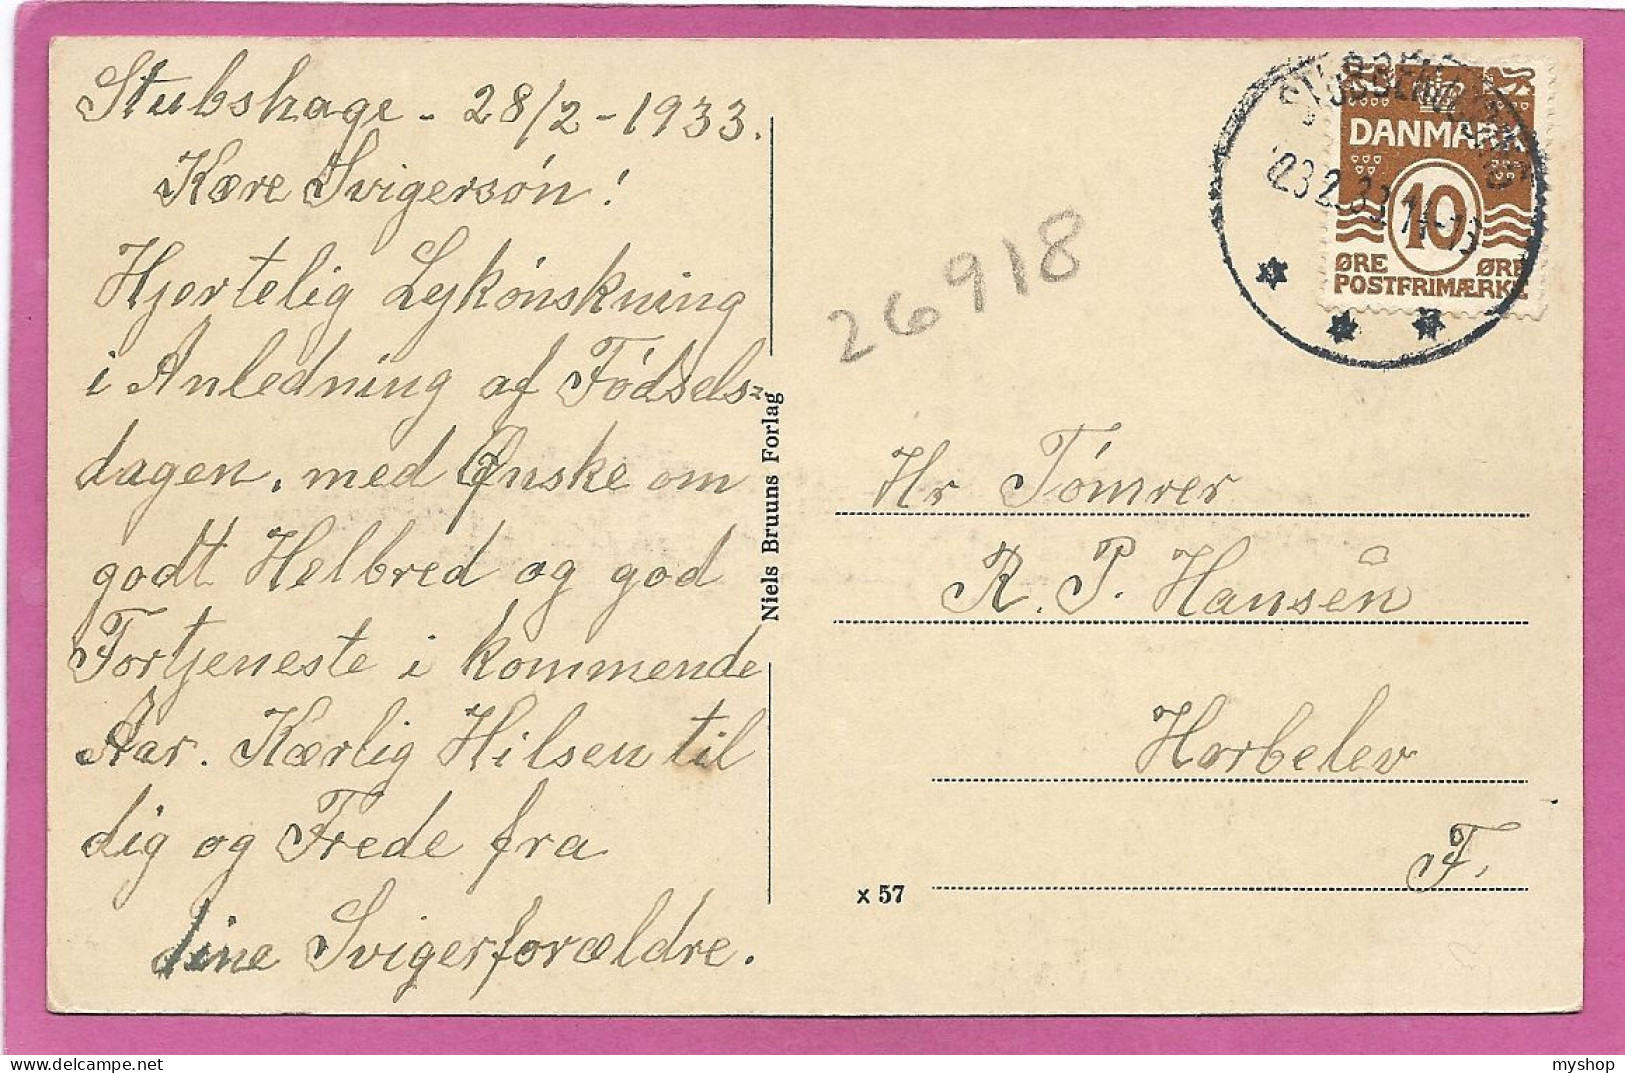 Stubshage - 28/2 - 1933.
Kære Svigersón!
Hjertelig Lykónskning
i Anledning af Fódsels-
dagen, med Ønske om
godt Helbred og god
Fortjeneste i kommende
Aar. Kærlig Hilsen til
dig og Frede fra
dine Svigerforældre.
Niels Bruuns Forlag
26918
DANMARK
10
ØRE ØRE
POSTFRIMÆRKE
Hr Tómrer
R. P. Hansen
Horbelev
F.
x 57
myshop